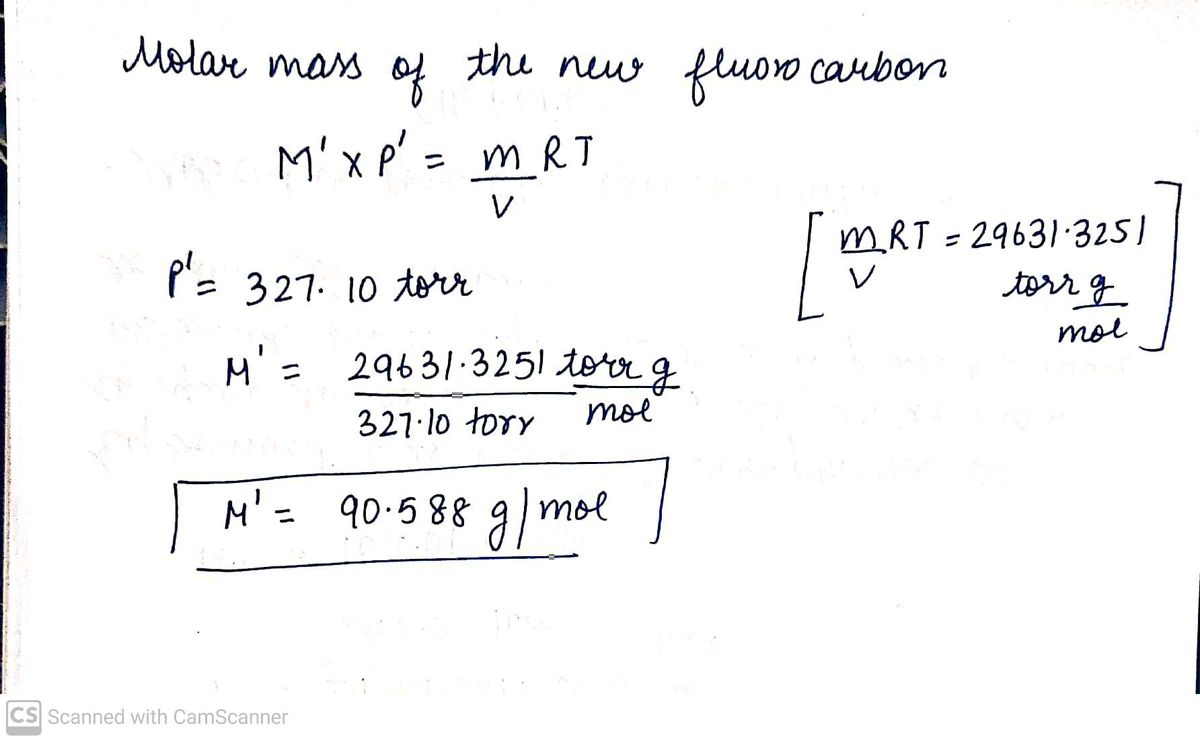 Molar mass of the new fluoro carbon
M' x P' = m RT
V
[ m RT = 29631.3251
V
torr g
mol ]
P' = 327. 10 torr
M' = 29631.3251 torr g
327.10 torr mol
M' = 90.588 g/mol
CS Scanned with CamScanner